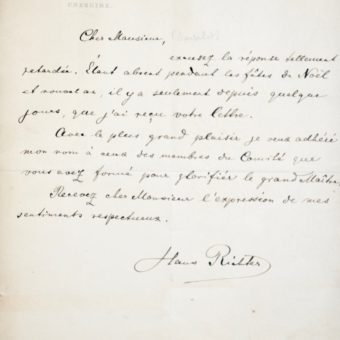 CHESHIRE.
Cher Monsieur,
excusez la réponse tellement
retardée. Étant absent pendant les fêtes de Noël
et nouvel an, il y a seulement depuis quelque
jours, que j'ai reçu votre lettre.
Avec le plus grand plaisir je veux adhéré
mon nom à ceux des membres du Comité que
vous avez formé pour glorifier le grand Maître.
Recevez cher Monsieur l'expression de mes
sentiments respectueux.
Hans Richter